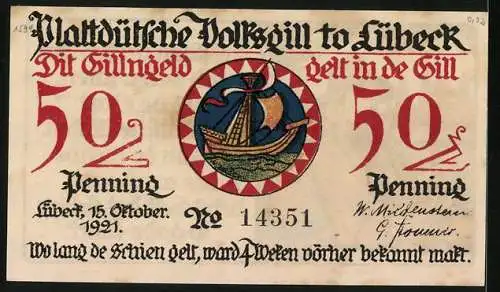 Plattdütsche Volksgill to Lübeck
Dit Gillngeld gelt in de Gill
50 50
Penning Penning
Lübeck, 15. Oktober.
1921.
No 14351
Wo lang de Schien gelt, ward 4 Weken vörher bekannt makt.